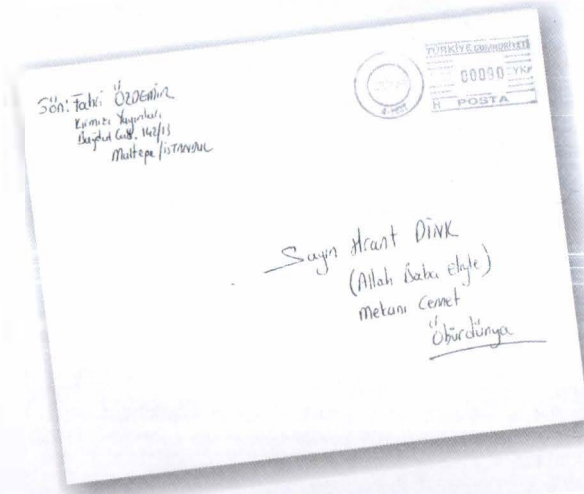 Gön: Fahri ÖZDEMİR
Kırmızı Yayınları
Bağdat Cad. 142/15
Maltepe/İSTANBUL
TÜRKİYE CUMHURİYETİ
00090 YKR
H POSTA
Sayın Hrant DİNK
(Allah Baba Eliyle)
Mekanı Cennet
Öbürdünya